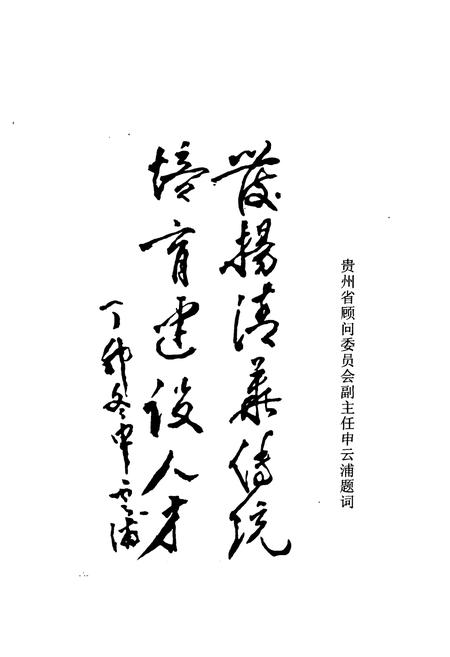 贵州省顾问委员会副主任申云浦题词
發揚清華傳統
培育建设人才
丁卯冬申雲浦